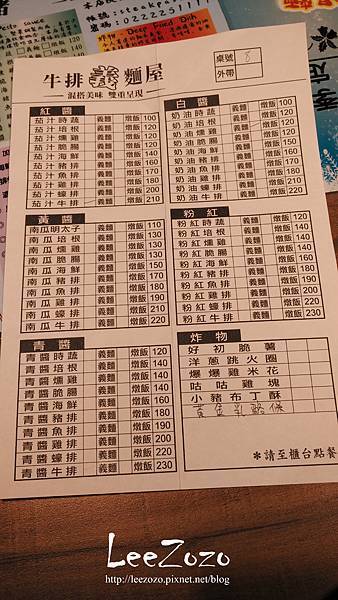 牛排義麵屋
混搭美味 雙重呈現
桌號 8
外帶
紅醬
茄汁時蔬 義麵 燉飯 100
茄汁培根 義麵 燉飯 120
茄汁燻雞 義麵 燉飯 120
茄汁脆腸 義麵 燉飯
茄汁海鮮 義麵 燉飯
茄汁豬排 義麵 燉飯 160
茄汁魚排 義麵 燉飯
茄汁雞排 義麵 燉飯
茄汁蠔排 義麵 燉飯
茄汁牛排 義麵 燉飯 210
白醬
奶油時蔬 義麵 燉飯 100
奶油培根 義麵 燉飯 120
奶油燻雞 義麵 燉飯 120
奶油脆腸 義麵 燉飯
奶油海鮮 義麵 燉飯
奶油豬排 義麵 燉飯
奶油魚排 義麵 燉飯
奶油雞排 義麵 燉飯
奶油蠔排 義麵 燉飯
奶油牛排 義麵 燉飯 210
黃醬
南瓜明太子 義麵 燉飯 110
南瓜培根 義麵 燉飯 130
南瓜燻雞 義麵 燉飯 130
南瓜脆腸 義麵 燉飯 130
南瓜海鮮 義麵 燉飯 150
南瓜豬排 義麵 燉飯 170
南瓜魚排 義麵 燉飯 180
南瓜雞排 義麵 燉飯 190
南瓜蠔排 義麵 燉飯 200
南瓜牛排 義麵 燉飯 220
粉紅
粉紅時蔬 義麵 燉飯 120
粉紅培根 義麵 燉飯
粉紅燻雞 義麵 燉飯
粉紅脆腸 義麵 燉飯
粉紅海鮮 義麵 燉飯
粉紅豬排 義麵 燉飯 180
粉紅魚排 義麵 燉飯 190
粉紅雞排 義麵 燉飯 200
粉紅蠔排 義麵 燉飯 210
粉紅牛排 義麵 燉飯 230
青醬
青醬時蔬 義麵 燉飯 120
青醬培根 義麵 燉飯 140
青醬燻雞 義麵 燉飯 140
青醬脆腸 義麵 燉飯 140
青醬海鮮 義麵 燉飯 160
青醬豬排 義麵 燉飯 180
青醬魚排 義麵 燉飯 190
青醬雞排 義麵 燉飯 200
青醬蠔排 義麵 燉飯 210
青醬牛排 義麵 燉飯 230
炸物
好初脆薯
洋蔥跳火圈
爆爆雞米花
咕咕雞塊
小豬布丁酥
黃金乳酪條
＊請至櫃台點餐
LeeZozo
http://leezozo.pixnet.net/blog